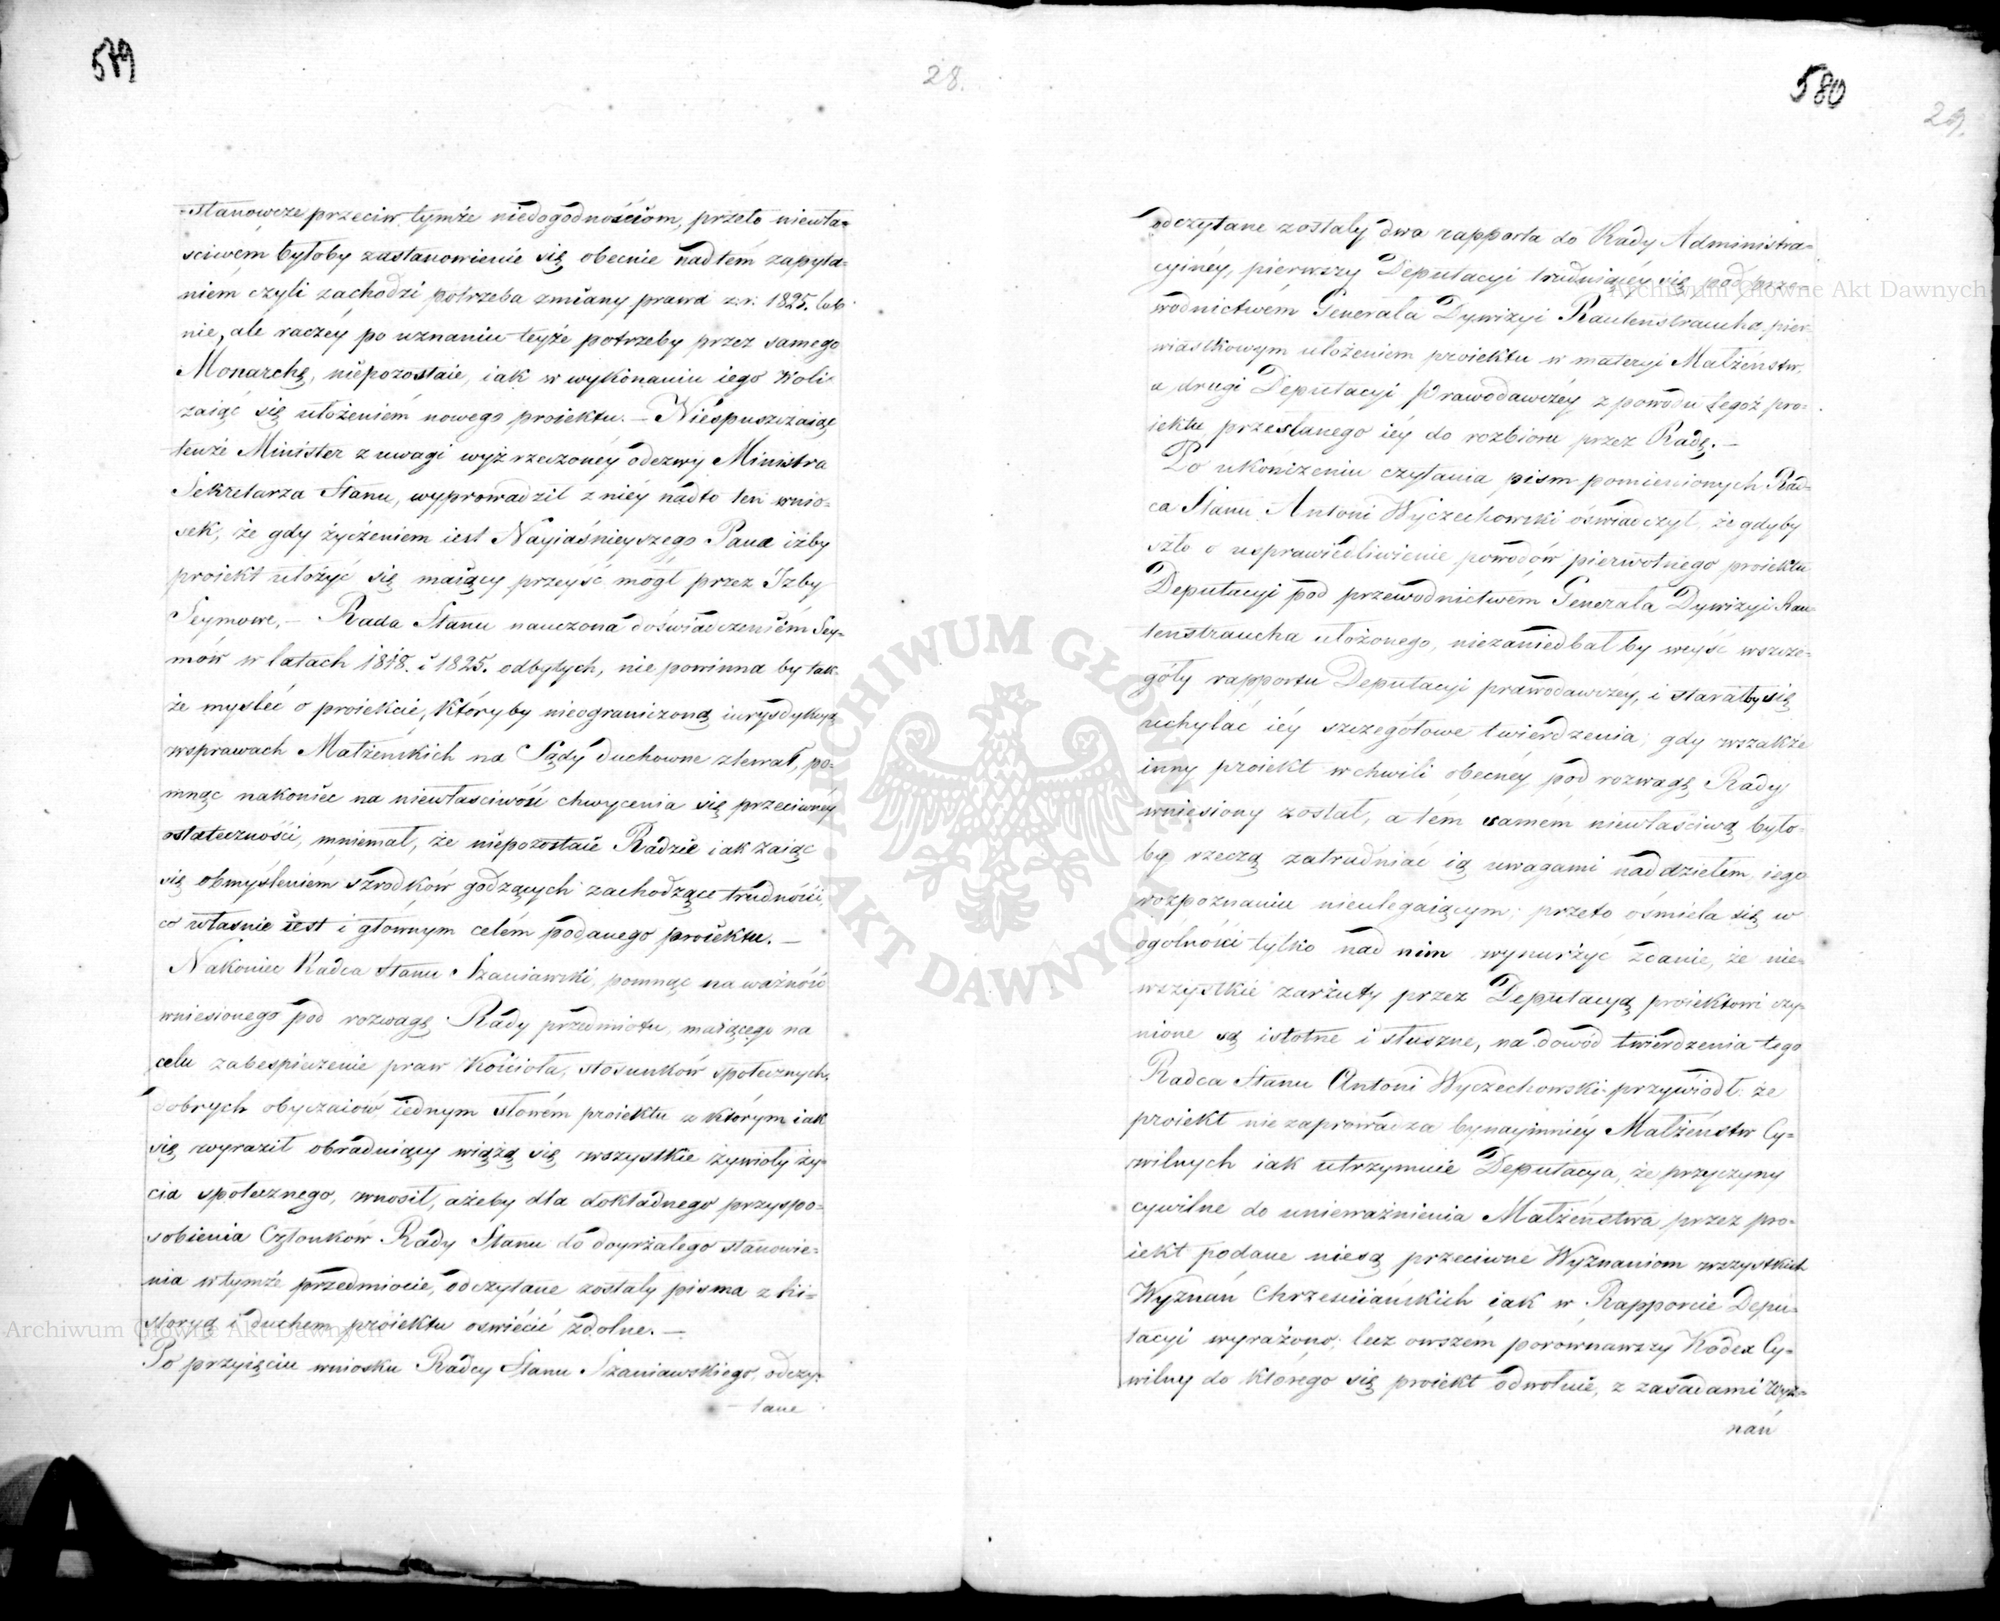 579
28.
stanowcze przeciw tymże niedogodnościom, przeto niewła=
sciwem byłoby zastanowienie się obecnie nad tém zapyta=
niem czyli zachodzi potrzeba zmiany prawa z r. 1825. lub
nie, ale raczéy po uznaniu teyże potrzeby przez samego
Monarchę, niepozostaie, iak w wykonaniu iego Woli
zaiąć się ułożeniem nowego proiektu. — Niespuszczaiąc
tenże Minister z uwagi wyż rzeczonéy odezwy Ministra
Sekretarza Stanu, wyprowadził z niéy nadto ten wnio=
sek, że gdy życzeniem iest Nayiaśnieyszego Pana iżby
proiekt ułożyć się maiący przeyść mógł przez Izby
Seymowe, — Rada Stanu nauczona doświadczeniém Sey=
mów w latach 1818. i 1825. odbytych, nie powinna by tak=
że mysleć o proiekcie, któryby nieograniczoną iurysdykcyą
w sprawach Małżeńskich na Sądy duchowne zlewał, po=
mnąc nakoniec na niewłasciwość chwycenia się przeciwnéy
ostateczności, mniemał, że niepozostaie Radzie iak zaiąć
się obmyśleniem szrodków godzących zachodzące trudności,
co własnie iest i głownym celém podanego proiektu. —
Nakoniec Radca Stanu Szaniawski, pomnąc na ważność
wniesionego pod rozwagę Rady przedmiotu, maiącego na
celu zabespieczenie praw Kościoła, stosunków społecznych,
dobrych obyczaiów iednym słowém proiektu z którym iak
się wyraził obraduiący wiążą się wszystkie żywioły ży=
cia społecznego, wnosił, ażeby dla dokładnego przyspo=
sobienia Członków Rady Stanu do doyrzałego stanowie=
nia w tymże przedmiocie, odczytane zostały pisma z hi=
storyą i duchem proiektu oswiécić zdolne. —
Po przyięciu wniosku Radcy Stanu Szaniawskiego, odczy=
tane
580
29.
odczytane zostały dwa rapporta do Rady Administra=
cyinéy, pierwszy Deputacyi trudniącéy się pod prze=
wodnictwém Generała Dywizyi Rautenstraucha pier=
wiastkowym ułożeniem proiektu w materyi Małżeństw,
a drugi Deputacyi Prawodawczéy z powodu tegoż pro=
iektu przesłanego iéy do rozbioru przez Radę. —
Po ukończeniu czytania pism pomienionych Rad=
ca Stanu Antoni Wyczechowski oświadczył, że gdyby
szło o usprawiedliwienie powodów pierwotnego proiektu
Deputacyi pod przewodnictwém Generała Dywizyi Rau=
tenstraucha ułożonego, niezaniedbał by weyść w szcze=
góły rapportu Deputacyi prawodawczéy, i starałby się
uchylać iéy szczegółowe twierdzenia; gdy wszakże
inny proiekt w chwili obecnéy pod rozwagę Rady
wniesiony został, a tém samém niewłasciwą było=
by rzeczą zatrudniać ią uwagami nad dziełem iego
rozpoznaniu nieulegaiącym; przeto ośmiela się w
ogólności tylko nad nim wynurzyć zdanie, że nie=
wszystkie zarzuty przez Deputacyą proiektowi czy=
nione są istotne i słuszne, na dowód twierdzenia tego
Radca Stanu Antoni Wyczechowski przywiódł: że
proiekt nie zaprowadza bynaymniéy Małżeństw Cy=
wilnych iak utrzymuie Deputacya, że przyczyny
cywilne do unieważnienia Małżeństwa przez pro=
iekt podane niesą przeciwne Wyznaniom wszystkich
Wyznań Chrzesciiańskich iak w Rapporcie Depu=
tacyi wyrażono; lecz owszem porównawszy Kodex Cy=
wilny do którego się proiekt odwołuie, z zasadami Wyz=
nań
ARCHIWUM GŁÓWNE AKT DAWNYCH
Archiwum Główne Akt Dawnych
Archiwum Główne Akt Dawnych